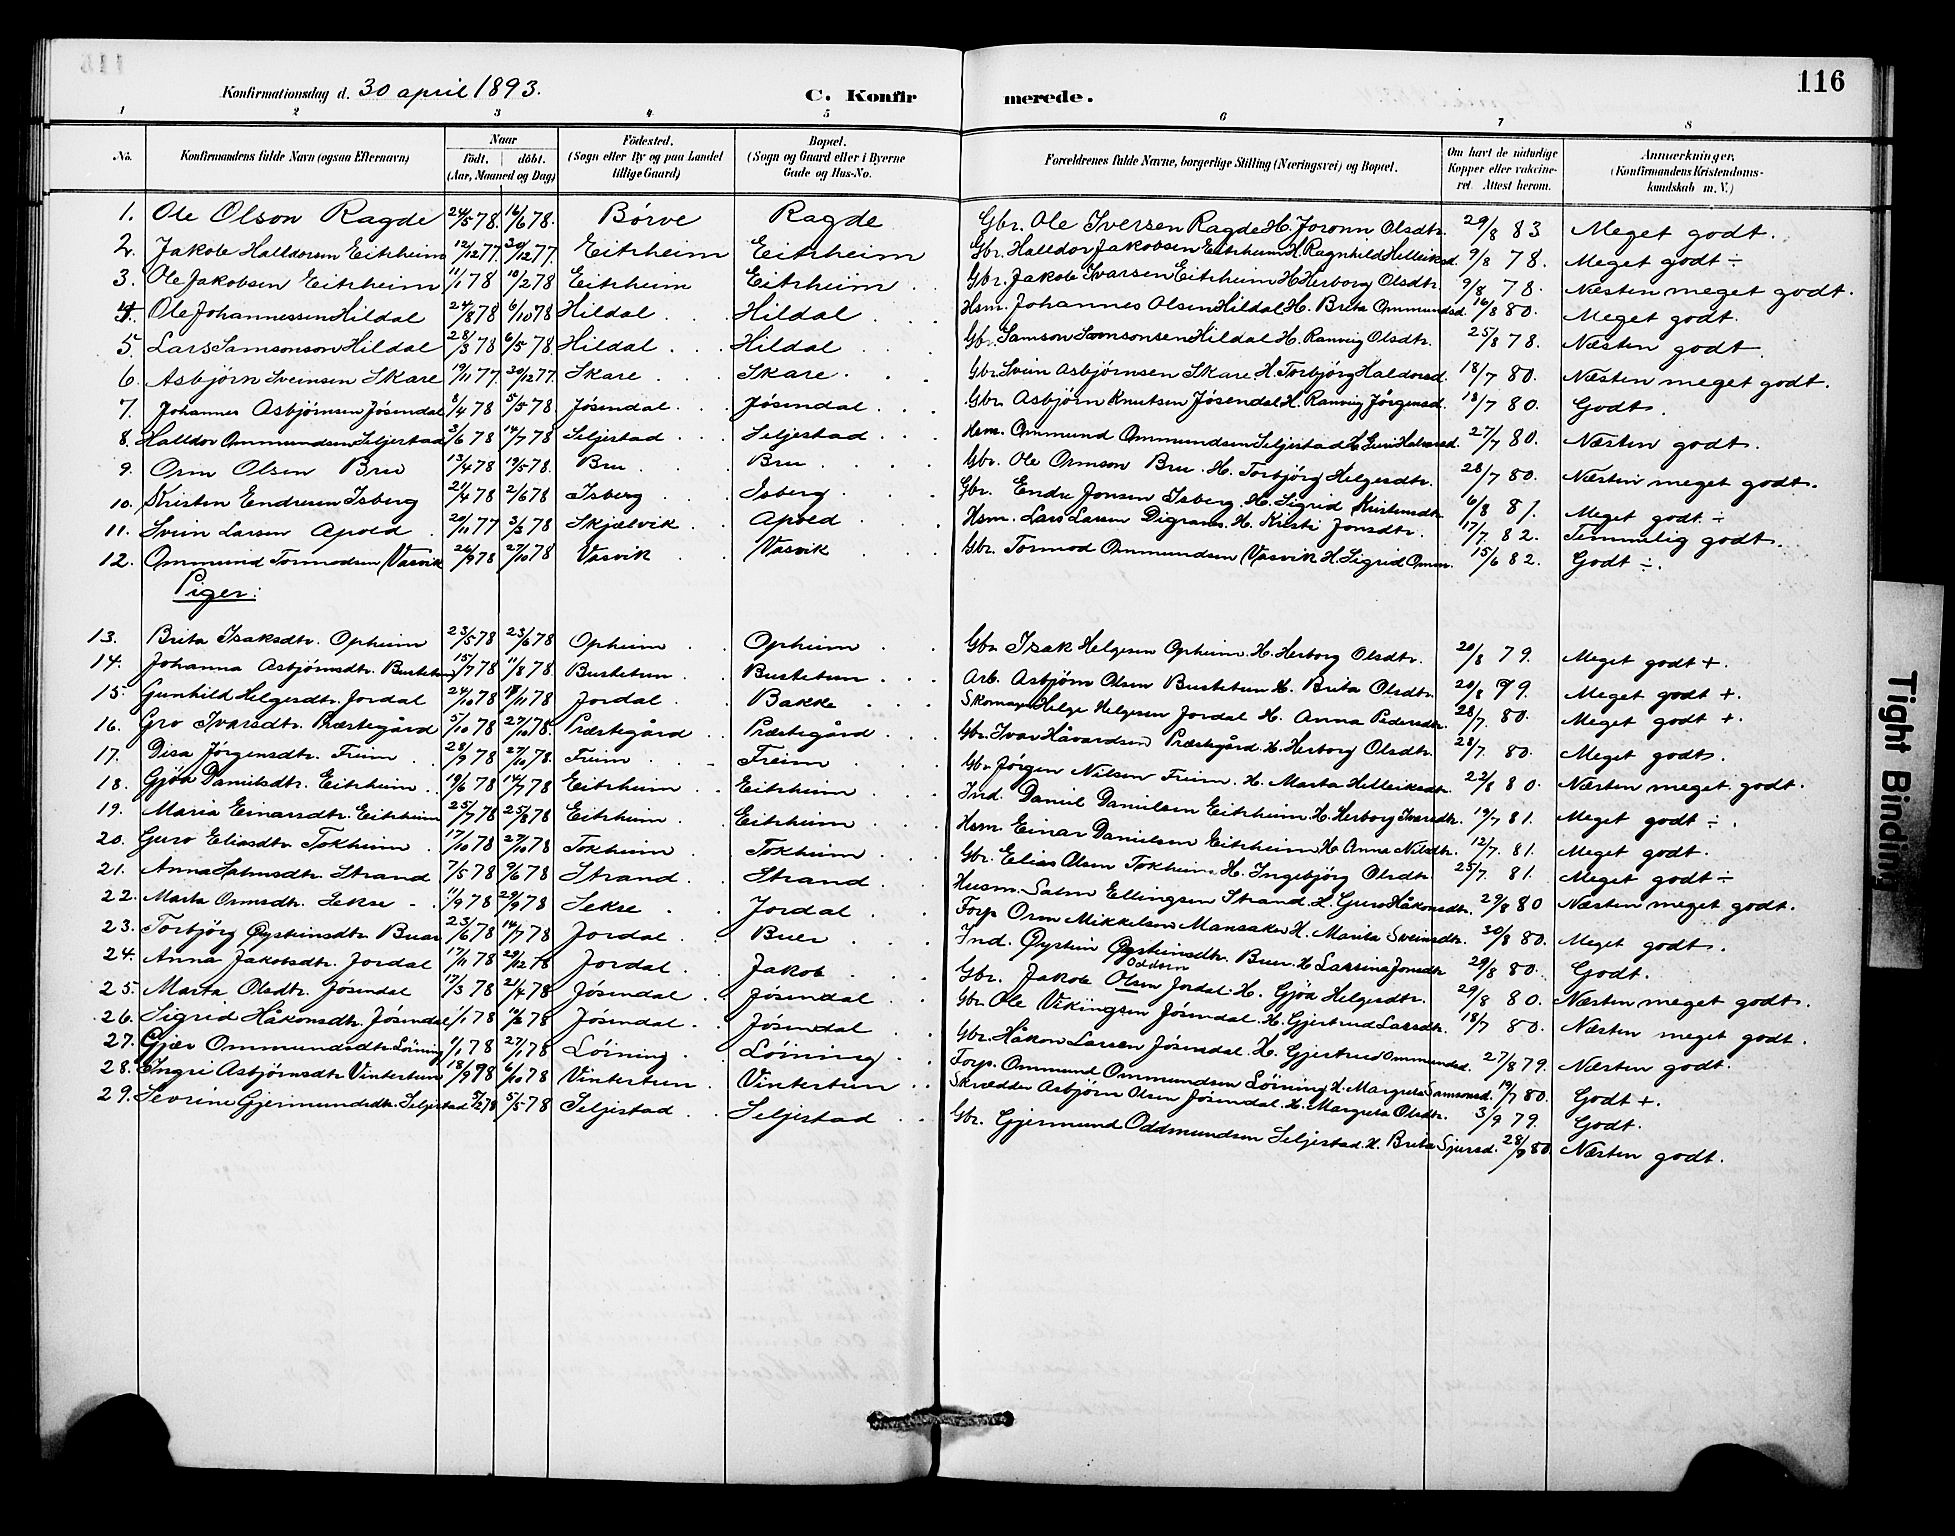 116
Konfirmationsdag d. 30 april 1893.
C. Konfirmerede.
1 2 3 4 5 6 7 8
No. Konfirmandens fulde Navn (ogsaa Efternavn) Naar født. døbt. (Aar, Maaned og Dag) Fødested. (Sogn eller By og paa Landet tillige Gaard) Bopæl. (Sogn og Gaard eller i Byerne Gade og Hus-No. Forældrenes fulde Navne, borgerlige Stilling (Næringsvei) og Bopæl. Om havt de naturlige Kopper eller vakcineret. Attest herom. Anmærkninger. (Konfirmandens Kristendomskundskab m. V.)
1. Ole Olson Ragde 24/5 78. 16/6 78. Börve Ragde Gbr. Ole Iversen Ragde H. Joronn Olsdtr. 29/8 83 Meget godt.
2. Jakob Halldorsen Eitrheim 12/12 77. 30/12 77. Eitrheim Eitrheim Gbr. Halldor Jakobsen Eitrheim H. Ragnhild Helleiksd. 9/8 78. Meget godt ÷
3. Ole Jakobsen Eitrheim 11/1 78 10/2 78 Eitrheim Eitrheim Gbr. Jakob Ivarsen Eitrheim H. Herborg Olsdtr. 9/8 78. Næsten meget godt.
4. Ole Johannessen Hildal 24/8 78 6/10 78 Hildal Hildal Hsm. Johannes Olsen Hildal H. Brita Ommundsd. 16/8 80. Meget godt.
5. Lars Samsonson Hildal 28/3 78 6/5 78. Hildal Hildal Gbr. Samson Samsonsen Hildal H. Ranveig Olsdtr. 25/8 78. Næsten godt
6. Asbjörn Sveinsen Skare 19/11 77. 30/12 77. Skare Skare Gbr. Svein Asbjörnsen Skare. H. Torbjörg Haldorsd. 18/7 80. Næsten meget godt.
7. Johannes Asbjörnsen Jösendal 8/4 78 5/5 78. Jösendal Jösendal Gbr. Asbjörn Knutsen Jösendal H. Ranveig Jörgensd. 18/7 80. Godt.
8. Halldor Ommundsen Seljestad 3/6 78 14/7 78 Seljestad Seljestad Hsm. Ommund Ommundsen Seljestad H. Guri Halvorsd. 27/7 80. Næsten godt.
9. Orm Olsen Bru 13/4 78 19/5 78. Bru Bru Gbr. Ole Ormson Bru. H. Torbjörg Helgesdtr. 28/7 80. Næsten meget godt.
10. Kristen Endresen Isberg 21/4 78 2/6 78 Isberg Isberg Gbr. Endre Jonsen Isberg. H. Sigrid Kristensdtr. 6/8 81. Meget godt ÷
11. Svein Larsen Apold 20/11 77 3/3 78 Skjælvik Apold Hsm. Lars Larsen Digranes. H. Kristi Jonsdtr. 17/7. 82. Temmelig godt.
12. Ommund Tormodsen Vasvik 26/9 78 27/10 78 Vasvik Vasvik Gbr. Tormod Ommundsen Vasvik H. Sigrid Omm. 15/6 82. Godt ÷.
Piger:
13. Brita Isaksdtr. Opheim 23/5 78 23/6 78 Opheim Opheim Gbr. Isak Helgesen Opheim. H. Herborg Olsdtr. 20/8 79. Meget godt +.
14. Johanna Asbjörnsdtr. Bustetun 15/7 78 11/8 78 Bustetun Bustetun Arb. Asbjörn Olsen Bustetun H. Brita Olsdtr. 20/8 79. Meget godt +.
15. Gunhild Helgesdtr. Jordal 24/10 78 /11 78 Jordal Bakke Skomager Helge Helgesen Jordal H. Anna Pedersdtr. 28/7. 80. Meget godt +.
16. Gro Ivarsdtr. Præstegård 5/10 78 27/10 78. Præstegård Præstegård Gbr. Ivar Håvardsen Præstegård H. Herborg Olsdtr. 28/7 80. Meget godt.
17. Disa Jörgensdtr. Freim 28/9 78 27/10 78. Freim Freim Gbr. Jörgen Nilsen Freim. H. Marta Helleiksdtr. 22/8 80. Næsten meget godt.
18. Gjöa Danielsdtr. Eitrheim 19/6 78 14/7 78 Eitrheim Eitrheim Ind. Daniel Danielsen Eitrheim H. Herborg Ivarsdtr. 19/7 81. Meget godt ÷.
19. Maria Einarsdtr. Eitrheim 25/7 78 25/8 78 Eitrheim Eitrheim Hsm Einar Danielsen Eitrheim H. Anna Nilsdtr. 12/7. 81. Meget godt.
20. Guro Eliasdtr. Tokheim 17/10 78 27/10 78 Tokheim Tokheim Gbr. Elias Olsen Tokheim. H. Ingebjörg Olsdtr. 25/7. 81. Meget godt ÷
21. Anna Salmsdtr. Strand 7/5 78 9/6 78 Strand Strand Husm. Salm Ellingsen Strand. H. Guro Håkonsdtr. 29/8 80 Næsten meget godt.
22. Marta Ormsdtr. Sekse 11/9 78 29/9 78 Sekse Jordal Forp. Orm Mikkelsen Mansaker H. Marita Sveinsdtr. 30/8 80. Meget godt.
23. Torbjörg Øysteinsdtr. Buar 23/6 78 14/7 78 Jordal Buer Ind. Øystein Øysteinsdtr. Buer. H. Larsina Jonsdtr 29/8 80. Godt.
24. Anna Jakobsdtr. Jordal 17/11 78 29/12 78 Jordal Jakob Gbr. Jakob Olsen Oddsen Jordal. H. Gjöa Helgesdtr. 29/8 80. Næsten meget godt.
25. Marta Olsdtr. Jösendal 17/3 78 21/4 78 Jösendal Jösendal Gbr. Ole Vikingsen Jösendal. H. Gjertrud Larsdtr. 18/7 80. Næsten meget godt.
26. Sigrid Håkonsdtr. Jösendal 1/1 78 10/3 78 Jösendal Jösendal Gbr. Håkon Larsen Jösendal. H. Gjertrud Ommundsd. 27/8 79. Næsten godt.
27. Gjær Ommundsdtr. Löining /1 78 27/1 78 Löining Löining Forp. Ommund Ommundsen Löining H. Margreta Samsonsd. 19/7 80. Godt +.
28. Ingri Asbjörnsdtr. Vintertun 18/9 78 6/10 78 Vintertun Vintertun Skrædder Asbjörn Olsen Jösendal. H. Margreta Olsdtr. 3/9 79. Godt.
29. Sevrine Gjermundsdtr. Seljestad 5/2 78 5/5 78 Seljestad Seljestad Gbr. Gjermund Oddmundsen Seljestad. H. Brita Sjursd. 28/7 80. Næsten godt.
Tight Binding